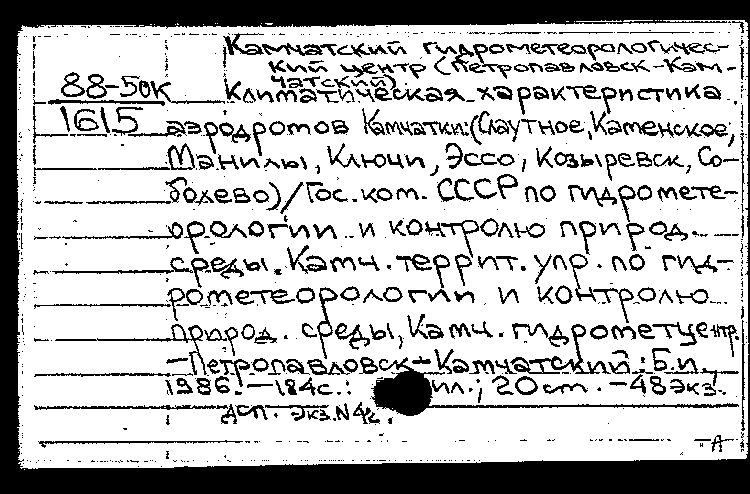 Камчатский гидрометеорологичес-
кий центр (Петропавловск-Кам-
чатский)
88-50к
1615
Климатическая характеристика
аэродромов Камчатки:(Слаутное, Каменское,
Манилы, Ключи, Эссо, Козыревск, Со-
болево)/Гос. ком. СССР по гидромете-
орологии и контролю природ.
среды. Камч. террит. упр. по гид-
рометеорологии и контролю
природ. среды, Камч. гидрометцентр.
–Петропавловск-Камчатский: Б.и.,
1986. – 184с.: ил.; 20 cm. – 48 экз.
ДСП. Экз. N 42.
– А